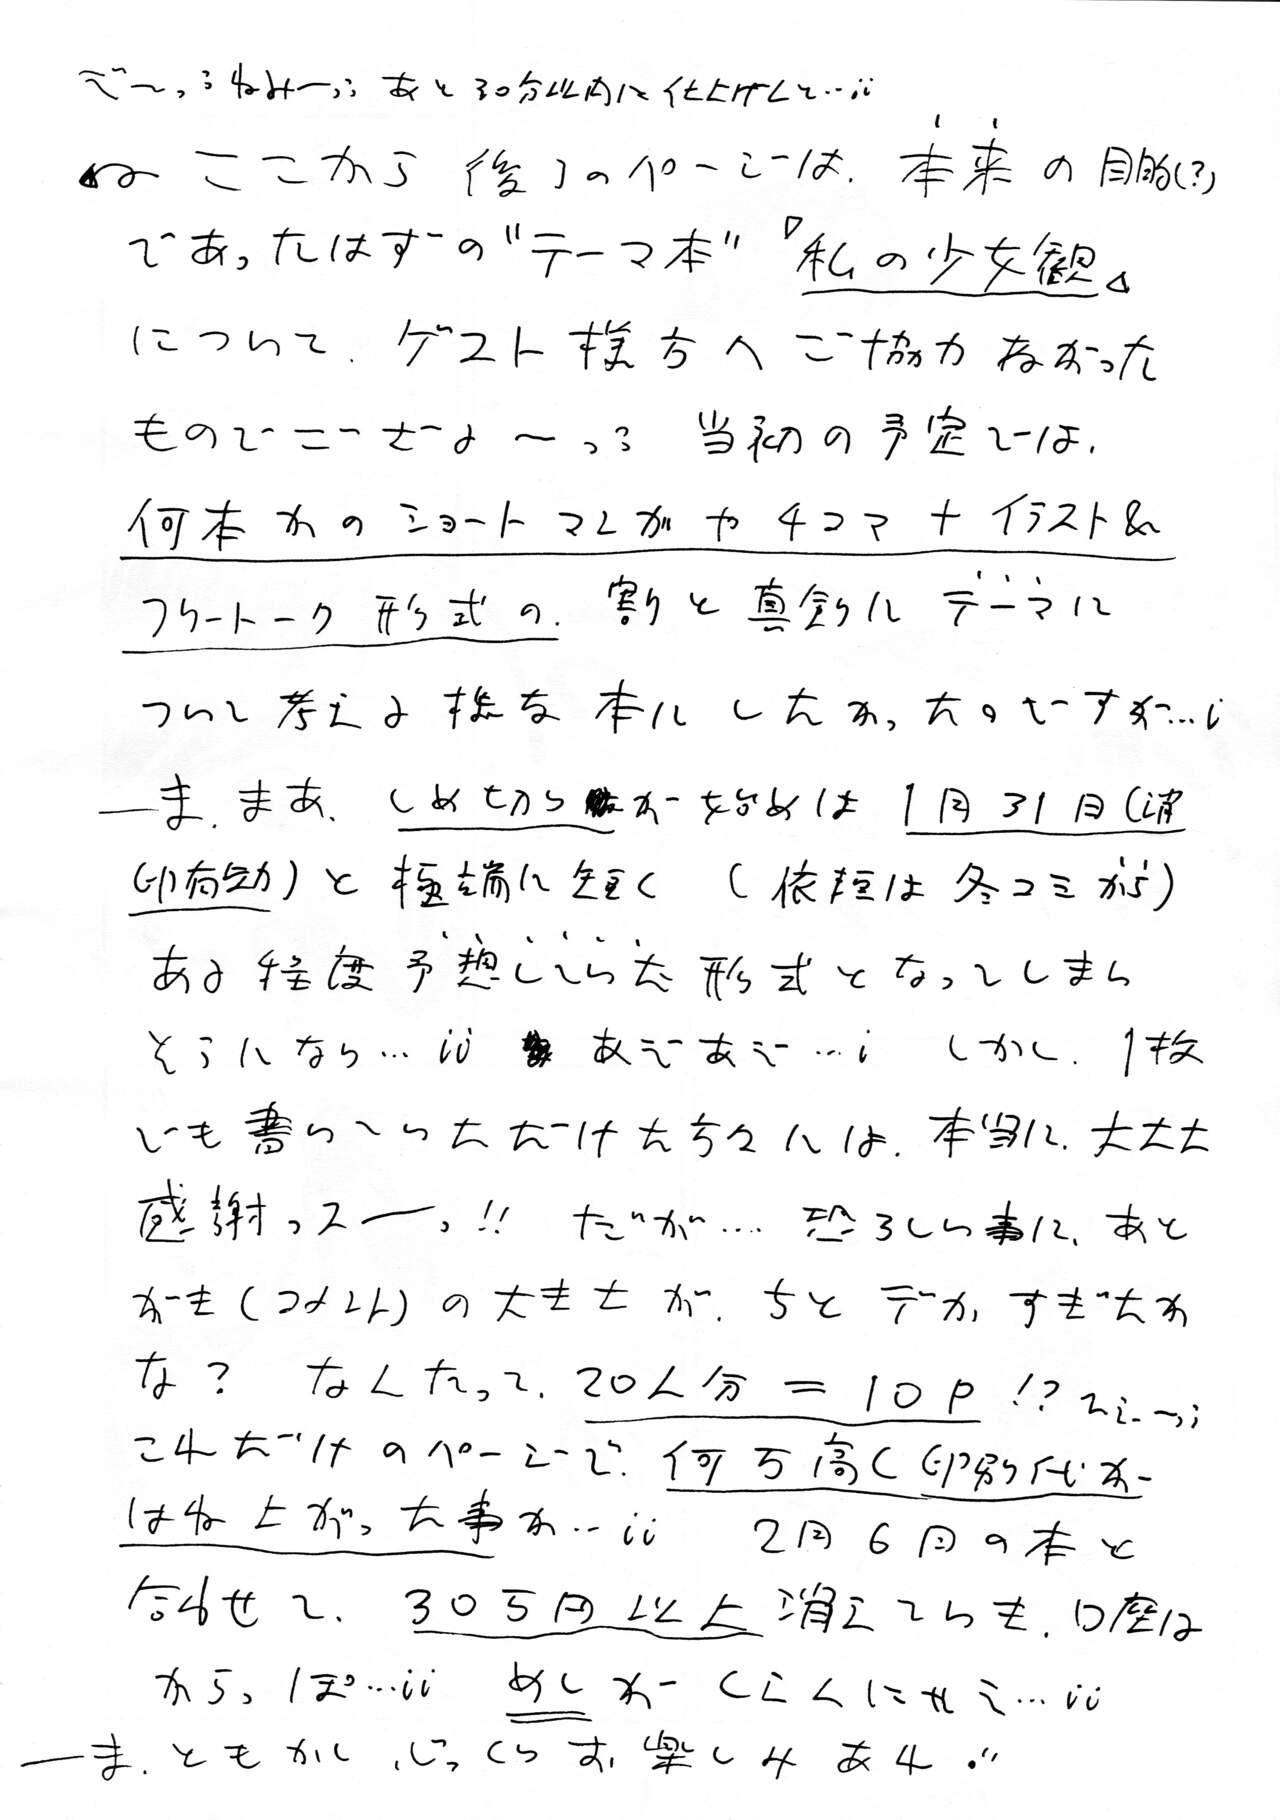 で〜っ;ねみーっ;;あと30分以内に仕上げんと…;;
ここから後ろのページは、本来の目的(?)
であったはずの"テーマ本"『私の少女観』
について、ゲスト様方へご協力ねがった
ものでございよ〜っ; 当初の予定では、
何本かのショートマンガや4コマ+イラスト&
フリートーク形式の、割と真剣にテーマに
ついて考える様な本にしたかったのですが…;
―ま、まあ、しめ切りが始めは1月31日(消
印有効)と極端に短く(依頼は冬コミから)
ある程度予想していた形式となってしまい
そうにない…;; あぞあぞ…; しかし、1枚
でも書いていただけた方々には、本当に、大大大
感謝っスーっ!! だが…恐ろしい事に、あと
がき(コメント)の大きさが、ちとデカすぎたか
な? なんたって、20人分=10P!?
これだけのページで、何万高く印刷代が
はね上がった事か…;; 2月6日の本と
合わせて、30万円以上消えていき、口座は
からっぽ…;; めしがくえんにゃえ…;;
―ま、ともかく、じっくりお楽しみあれ。"